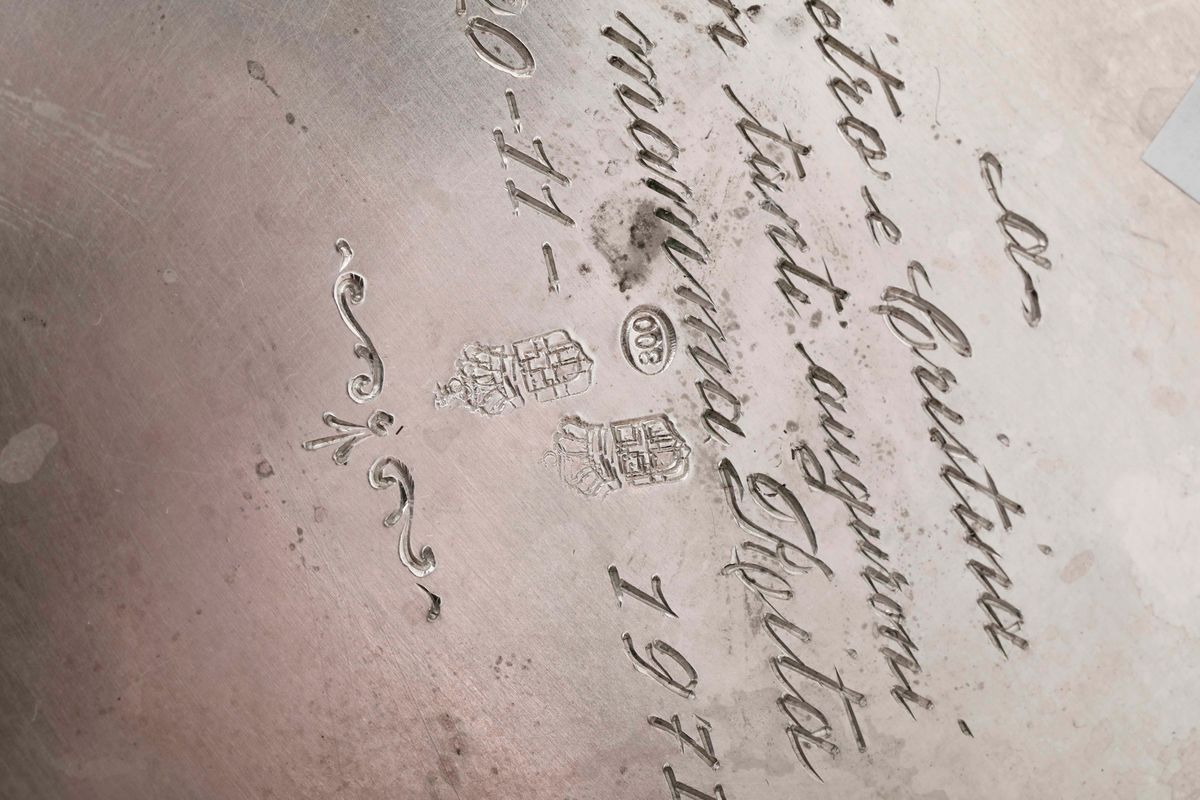 a
etro e Cristina
n tanti auguroni
mamma Rita
0-11-1971
800